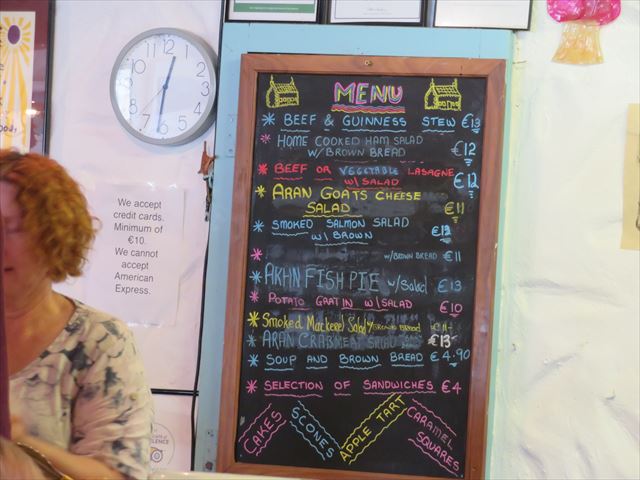 MENU
* BEEF & GUINNESS STEW €13
* HOME COOKED HAM SALAD
W/BROWN BREAD €12
* BEEF OR VEGETABLE LASAGNE
W/ SALAD €12
* ARAN GOATS CHEESE
SALAD €11
* SMOKED SALMON SALAD
W/ BROWN
* W/BROWN BREAD €11
* FISH PIE w/Salad €13
* POTATO GRATIN W/SALAD €10
* Smoked Mackerel Salad W/BROWN BREAD €11
* ARAN CRABMEAT SALAD €13
* SOUP AND BROWN BREAD €4.90
* SELECTION OF SANDWICHES €4
CAKES
SCONES
APPLE TART
CARAMEL
SQUARES
12
1
2
3
4
5
6
7
8
9
10
11
We accept
credit cards.
Minimum of
€10.
We cannot
accept
American
Express.